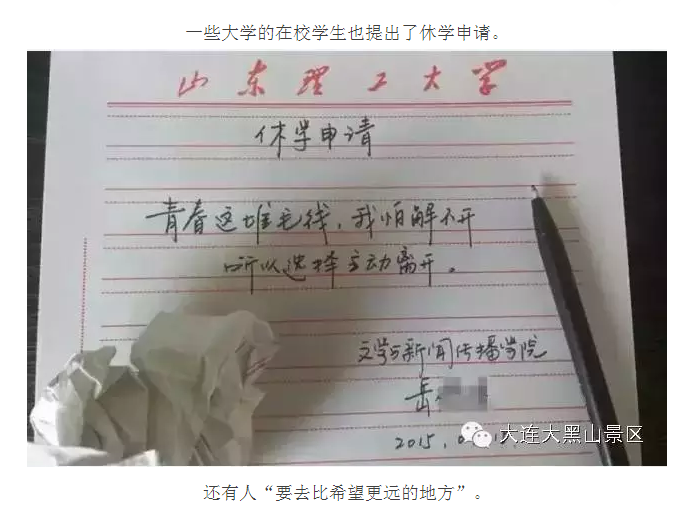 一些大学的在校学生也提出了休学申请。
山东理工大学
休学申请
青春这堆毛线，我怕解不开
所以选择主动离开。
文学与新闻传播学院
岳
2015.
大连大黑山景区
还有人“要去比希望更远的地方”。